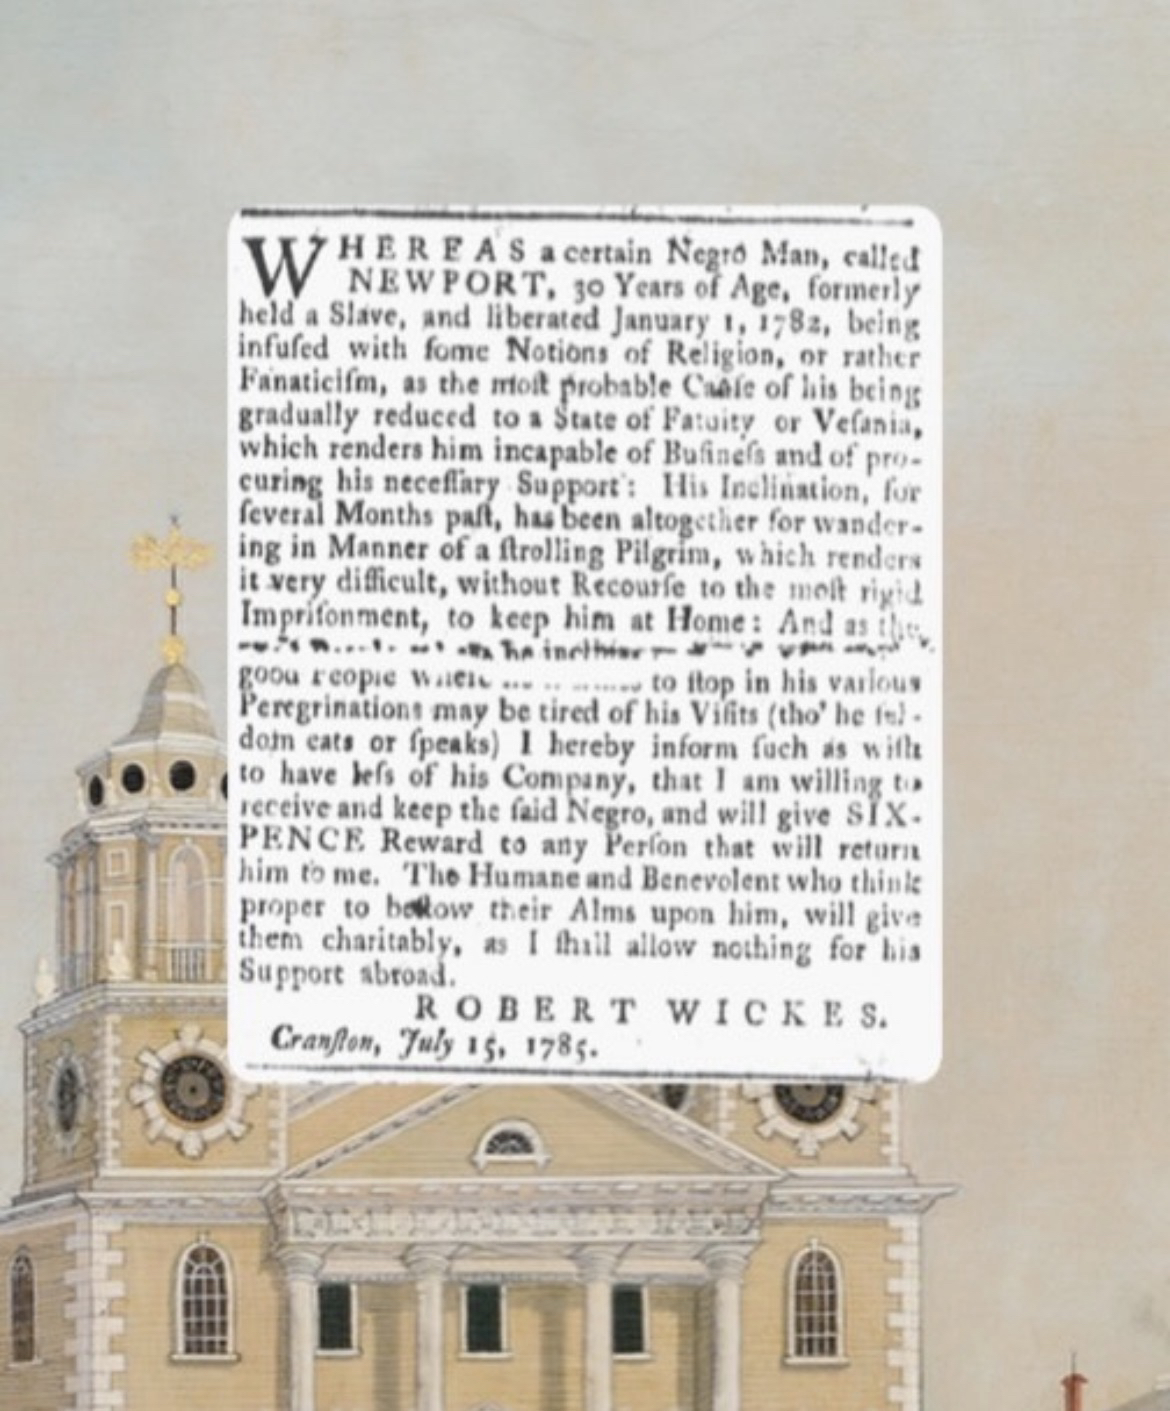 WHEREAS a certain Negro Man, called
NEWPORT, 30 Years of Age, formerly
held a Slave, and liberated January 1, 1782, being
infuſed with ſome Notions of Religion, or rather
Fanaticiſm, as the moſt probable Cauſe of his being
gradually reduced to a State of Fatuity or Veſania,
which renders him incapable of Buſineſs and of pro-
curing his neceſſary Support: His Inclination, for
ſeveral Months paſt, has been altogether for wander-
ing in Manner of a ſtrolling Pilgrim, which renders
it very difficult, without Recourſe to the moſt rigid
Impriſonment, to keep him at Home: And as the
he
good People where to ſtop in his various
Peregrinations may be tired of his Viſits (tho' he ſel-
dom eats or ſpeaks) I hereby inform ſuch as wiſh
to have leſs of his Company, that I am willing to
receive and keep the ſaid Negro, and will give SIX-
PENCE Reward to any Perſon that will return
him to me. The Humane and Benevolent who think
proper to beſtow their Alms upon him, will give
them charitably, as I ſhall allow nothing for his
Support abroad.
ROBERT WICKES.
Cranſton, July 15, 1785.